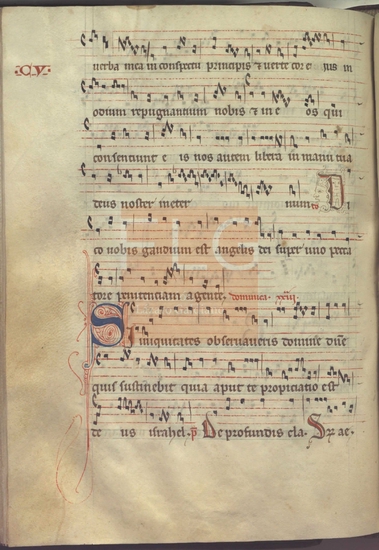 ·C·V·
uerba mea in conspectu principis & uerte cor e ius in
odium repugnantium nobis & in e os qui
consentiunt e is nos autem libera in manu tua
deus noster in eter num co Di
co uobis gaudium est angelis dei super uno pecca
tore penitenciam agente. dominica. xxiii.
Si iniquitates obseruaueris domine domine
quis sustinebit quia aput te propiciatio est
de us israhel. ps De profundis cla. S ae.